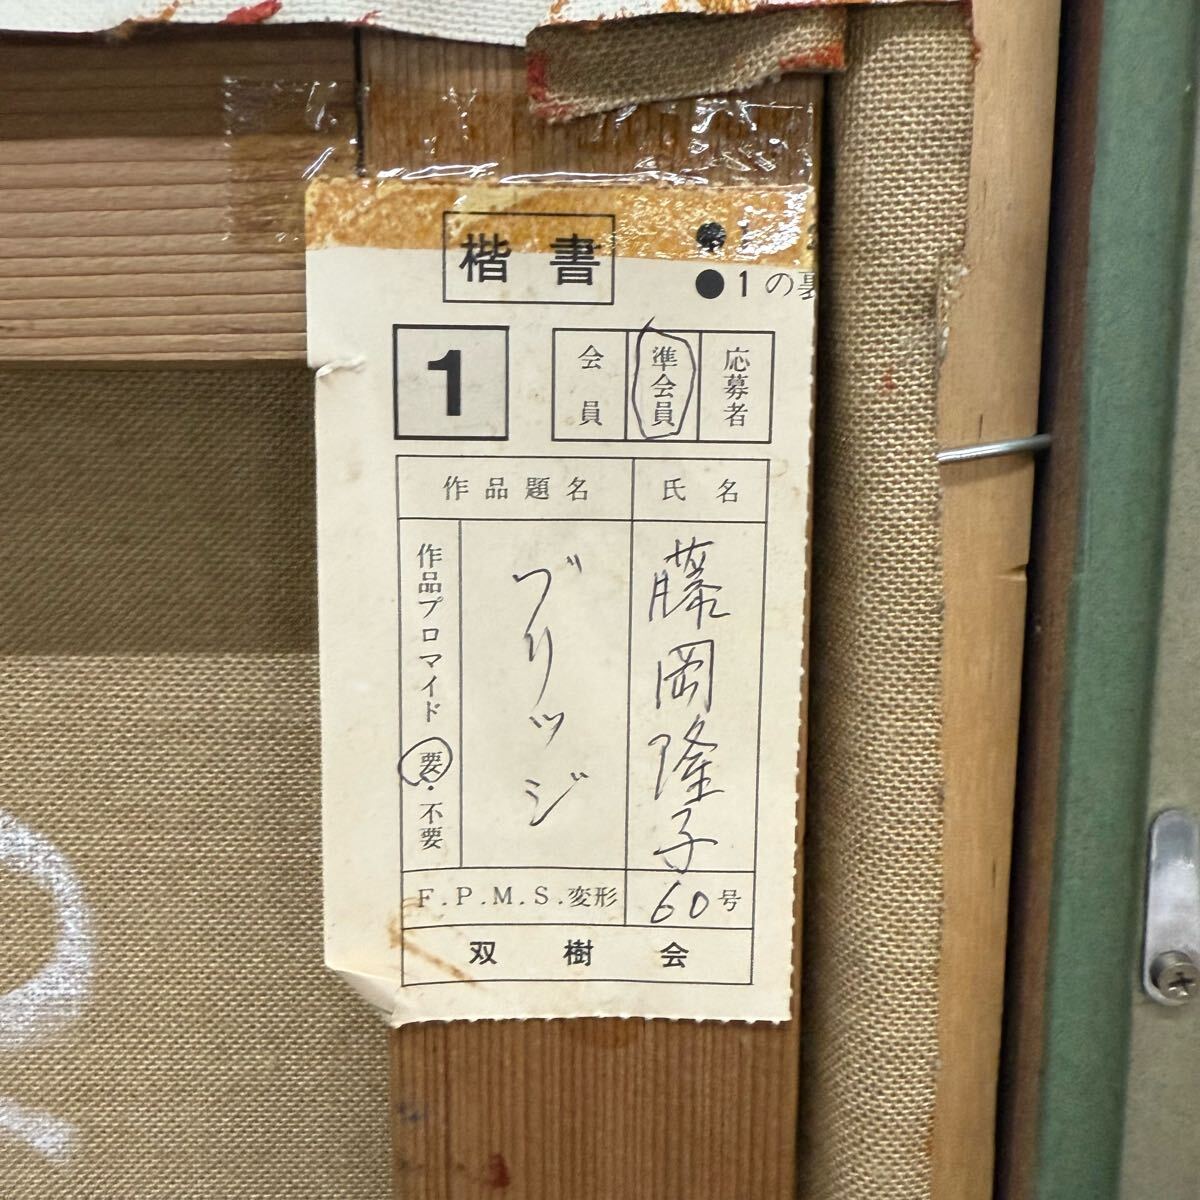 楷書
●1の裏
1
会員
準会員
応募者
作品題名
氏名
作品プロマイド 要・不要
ブリッジ
藤岡隆子
F.P.M.S.変形
60号
双樹会